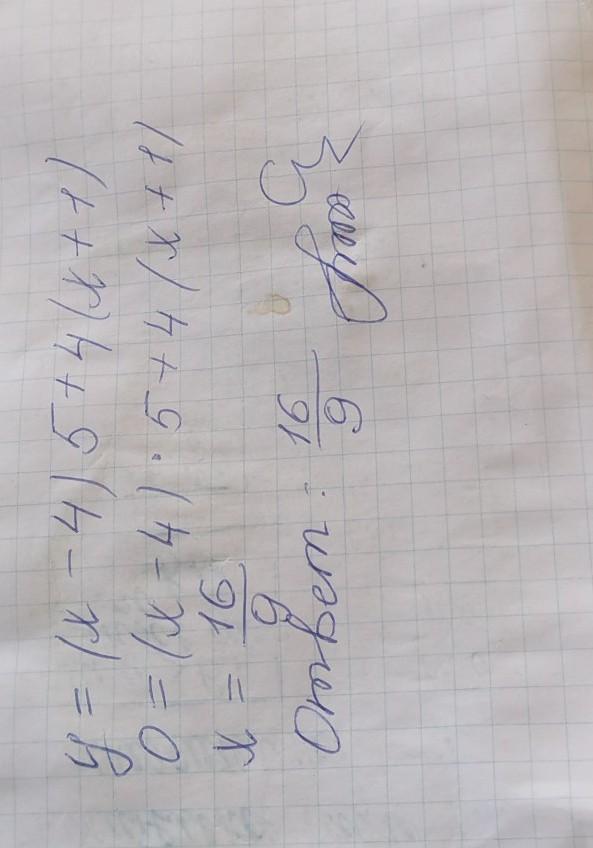 y = (x - 4) 5 + 4 (x + 1)
0 = (x - 4) · 5 + 4 (x + 1)
x = 16/9
Ответ: 16/9